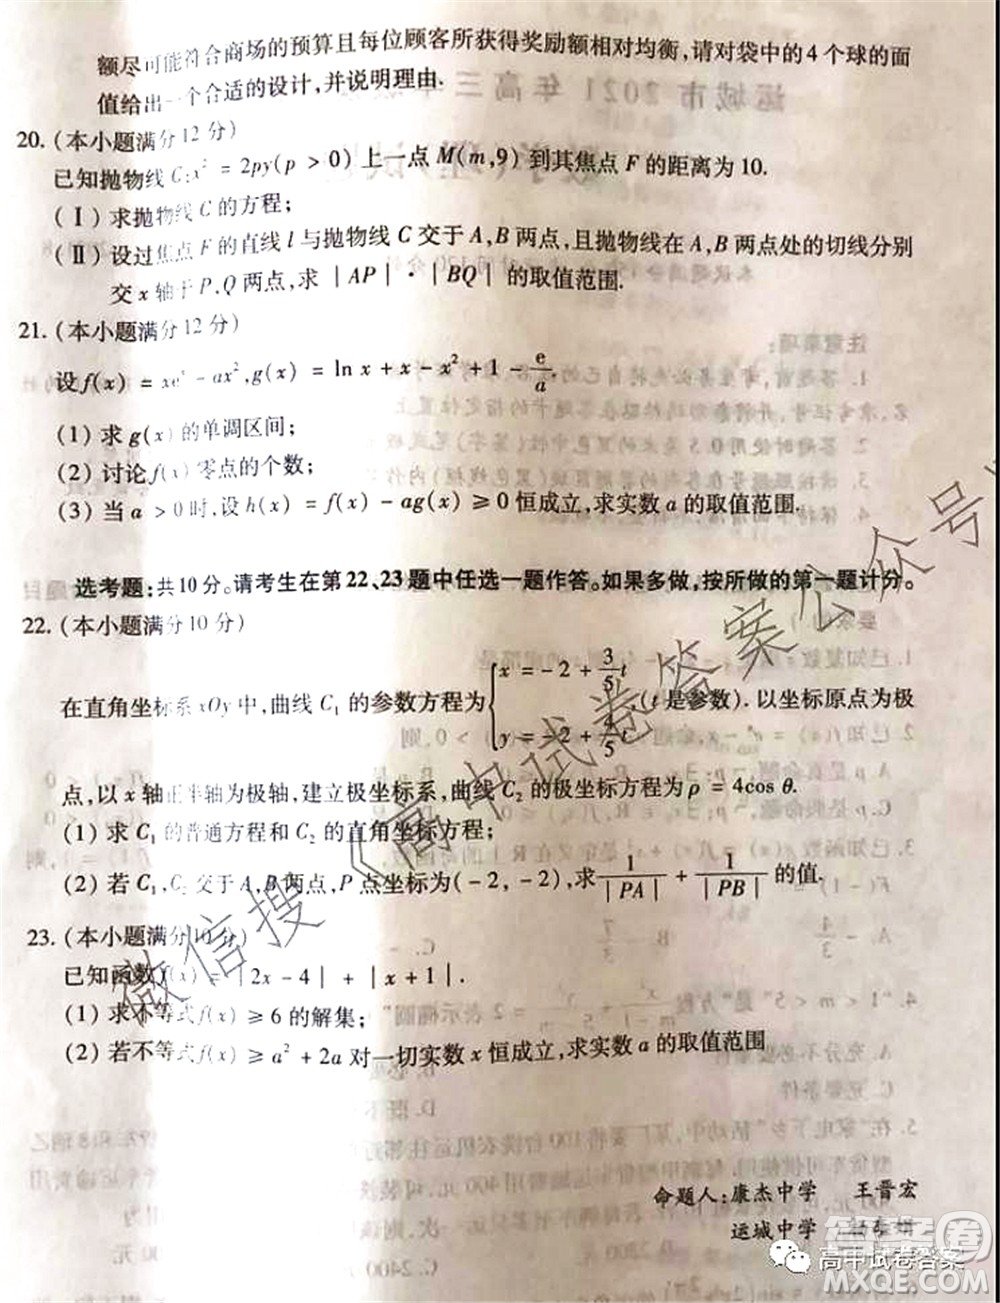 额尽可能符合商场的预算且每位顾客所获得奖励额相对均衡,请对袋中的4个球的面
值给出一个合适的设计,并说明理由.
20.(本小题满分12分)
已知抛物线C:x²=2py(p>0)上一点M(m,9)到其焦点F的距离为10.
(Ⅰ)求抛物线C的方程;
(Ⅱ)设过焦点F的直线l与抛物线C交于A,B两点,且抛物线在A,B两点处的切线分别
交x轴于P,Q两点,求|AP|·|BQ|的取值范围.
21.(本小题满分12分)
设f(x)=xeˣ-ax²,g(x)=lnx+x-x²+1-e/a.
(1)求g(x)的单调区间;
(2)讨论f(x)零点的个数;
(3)当a>0时,设h(x)=f(x)-ag(x)≥0恒成立,求实数a的取值范围.
选考题:共10分。请考生在第22、23题中任选一题作答。如果多做,按所做的第一题计分。
22.(本小题满分10分)
在直角坐标系xOy中,曲线C₁的参数方程为{x=-2+3/5t y=-2+4/5t (t是参数).以坐标原点为极
点,以x轴正半轴为极轴,建立极坐标系,曲线C₂的极坐标方程为ρ=4cosθ.
(1)求C₁的普通方程和C₂的直角坐标方程;
(2)若C₁,C₂交于A,B两点,P点坐标为(-2,-2),求1/|PA|+1/|PB|的值.
23.(本小题满分10分)
已知函数f(x)=|2x-4|+|x+1|.
(1)求不等式f(x)≥6的解集;
(2)若不等式f(x)≥a²+2a对一切实数x恒成立,求实数a的取值范围
命题人:康杰中学 王晋宏
运城中学
微信搜《高中试卷答案公众号
高中试卷答案
答案圈
MXQE.COM